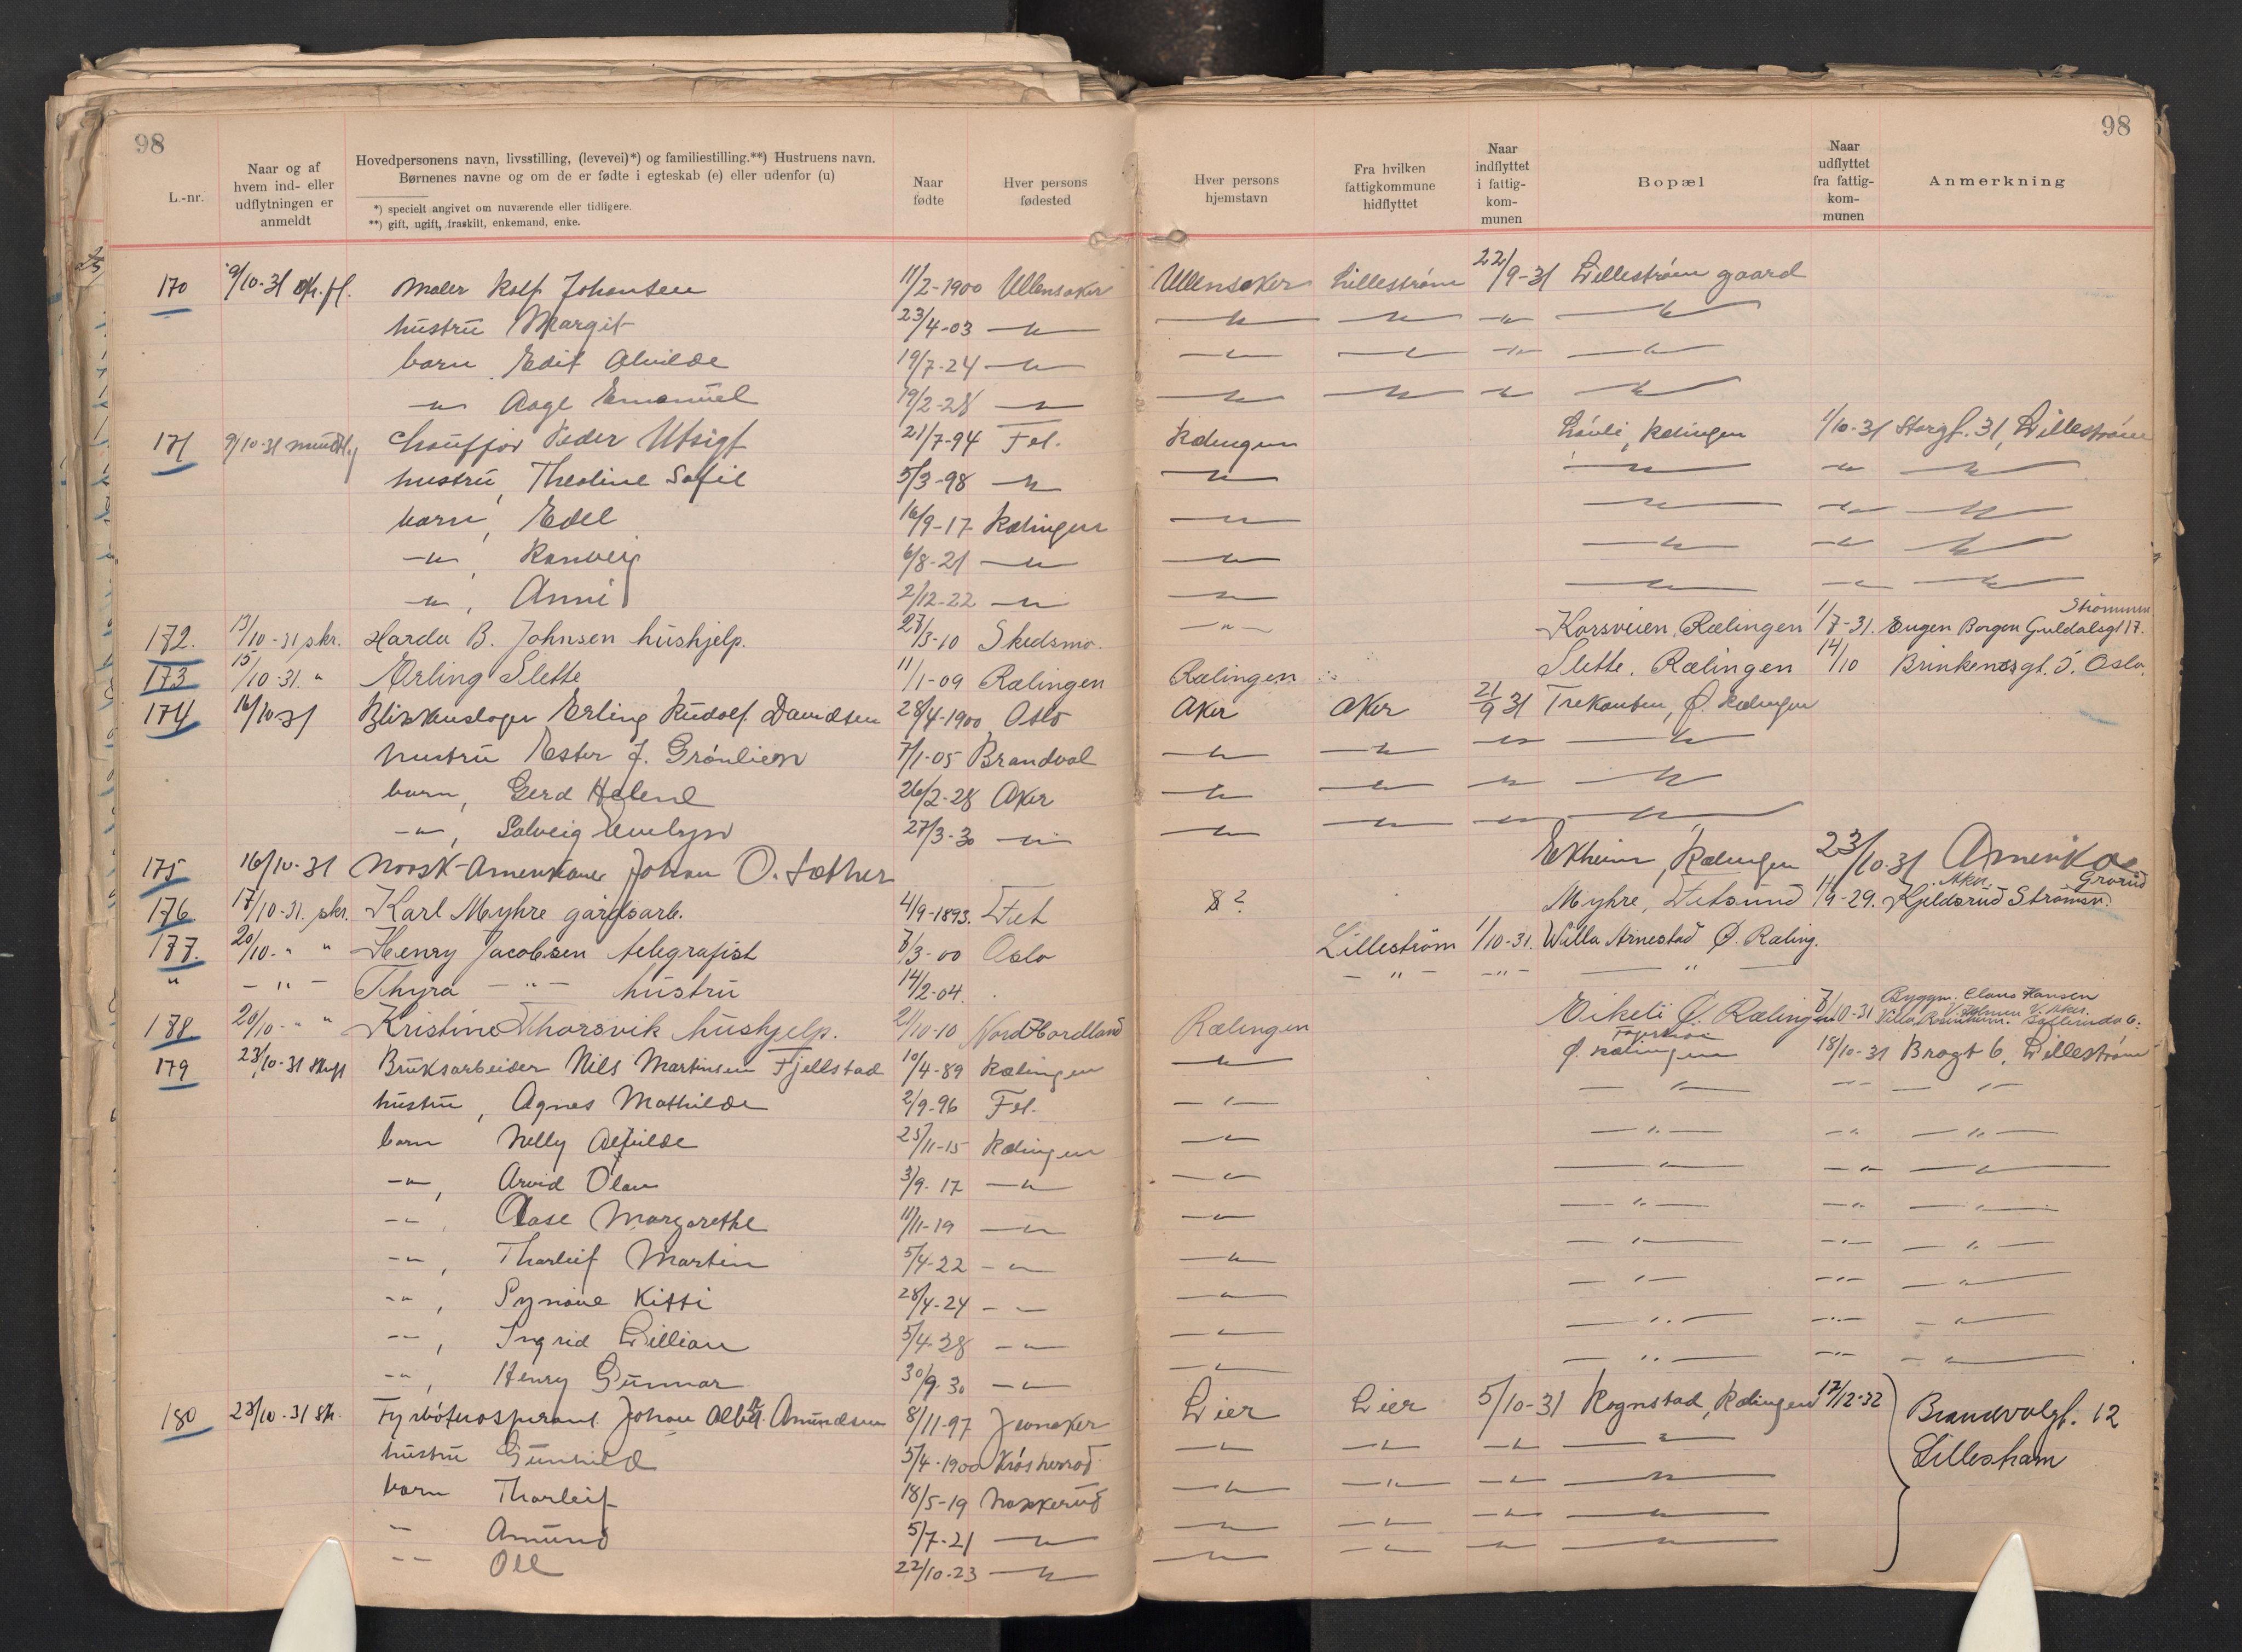 98
98
L.-nr.
Naar og af hvem ind- eller udflytningen er anmeldt
Hovedpersonens navn, livsstilling, (levevei)*) og familiestilling.**) Hustruens navn.
Børnenes navne og om de er fødte i egteskab (e) eller udenfor (u)
*) specielt angivet om nuværende eller tidligere.
**) gift, ugift, fraskilt, enkemand, enke.
Naar fødte
Hver persons fødested
Hver persons hjemstavn
Fra hvilken fattigkommune hidflyttet
Naar indflyttet i fattig-kom-munen
Bopæl
Naar udflyttet fra fattig-kom-munen
Anmerkning
170 9/10-31 Maler Rolf Johansen 11/2-1900 Ullensaker Ullensaker Lillestrøm 22/9-31 Lillestrøm gaard
hustru Margit 23/4-03 —"— —"— —"— —"— —"—
barn Edit Alvilde 19/7-24 —"— —"— —"— —"— —"—
—"— Aage Emanuel 19/2-28 —"— —"— —"— —"— —"—
171 9/10-31 mundtlig Chauffør Peder Utsigt 21/7-94 Fet. Rælingen Løvli, Rælingen 1/10-31 Storgt. 31, Lillestrøm
hustru, Theoline Sofie 5/3-98 —"— —"— —"— —"— —"—
barn, Edel 16/9-17 Rælingen —"— —"— —"— —"—
—"—, Ranveig 6/8-21 —"— —"— —"— —"— —"—
—"—, Anni 2/12-22 —"— —"— —"— —"— —"—
172. 13/10-31 skr. Harda B. Johnsen hushjelp. 27/3-10 Skedsmo. —"— Korsveien, Rælingen 1/7-31. Eugen Borgen Guldalsgt 17. Strömmen
173 15/10-31. " Erling Slette 11/1-09 Rælingen Rælingen Slette, Rælingen 14/10 Brinkensgt. 5. Oslo.
174 16/10-31 Blikkenslager Erling Rudolf Davidsen 28/4-1900 Oslo Aker Aker 21/9 31 Trekanten, Ø. Rælingen
hustru Ester J. Grønlien 7/1-05 Brandval —"— —"— —"— —"—
barn, Gerd Helene 26/2-28 Aker —"— —"— —"— —"—
—"—, Solveig Evelyn 27/3-30 —"— —"— —"— —"— —"—
175 16/10-31 Norsk-Amerikaner Johan O. Sæther Ekheim, Rælingen 23/10-31 Amerika
176 17/10-31. skr. Karl Myhre gårdsarb. 4/9-1893. Fet ? Myhre, Fetsund 1/9-29. Kjeldsrud Strømsv. Aker. Grorud
177. 20/10-" " Henry Jacobsen telegrafist 8/3-00 Oslo Lilleström 1/10-31. Willa Arnestad Ø. Ræling.
" —"— Thyra —"— hustru 14/2-04. —"— —"— —"—
178 20/10-" " Kristine Thorsvik hushjelp. 21/10-10 Nord Hordland Rælingen Eikeli Ø. Rælingen 8/10-31 Byggm. Claus Hansen
179 23/10-31 Bruksarbeider Nils Martinsen Fjellstad 10/4-89 Rælingen —"— Ø. Rælingen 18/10-31 Bragt 6, Lillestrøm
hustru, Agnes Mathilde 2/9-96 Fet. —"— —"— —"— —"—
barn Nelly Alfhilde 25/11-15 Rælingen —"— —"— —"— —"—
—"—, Arvid Olav 3/9-17 —"— —"— —"— —"— —"—
—"—, Aase Margarethe 11/11-19 —"— —"— —"— —"— —"—
—"—, Thorleif Martin 5/4-22 —"— —"— —"— —"— —"—
—"—, Synøve Kitti 28/4-24 —"— —"— —"— —"— —"—
—"—, Ingrid Lillian 5/4-28 —"— —"— —"— —"— —"—
—"—, Henry Gunnar 30/9-30 —"— —"— —"— —"— —"—
180 23/10-31 skr. Fyrbøteraspirant Johan Albert Amundsen 8/11-97 Jevnaker Lier Lier 5/10-31 Rognstad, Rælingen 17/12-32 Brandvolgt. 12
hustru Gunhild 5/4-1900 Krøsherrad —"— —"— —"— —"— Lillestrøm
barn Thorleif 18/5-19 Nakkerud —"— —"— —"— —"—
—"— Amund 5/7-21 —"— —"— —"— —"— —"—
—"— Ole 22/10-23 —"— —"— —"— —"— —"—